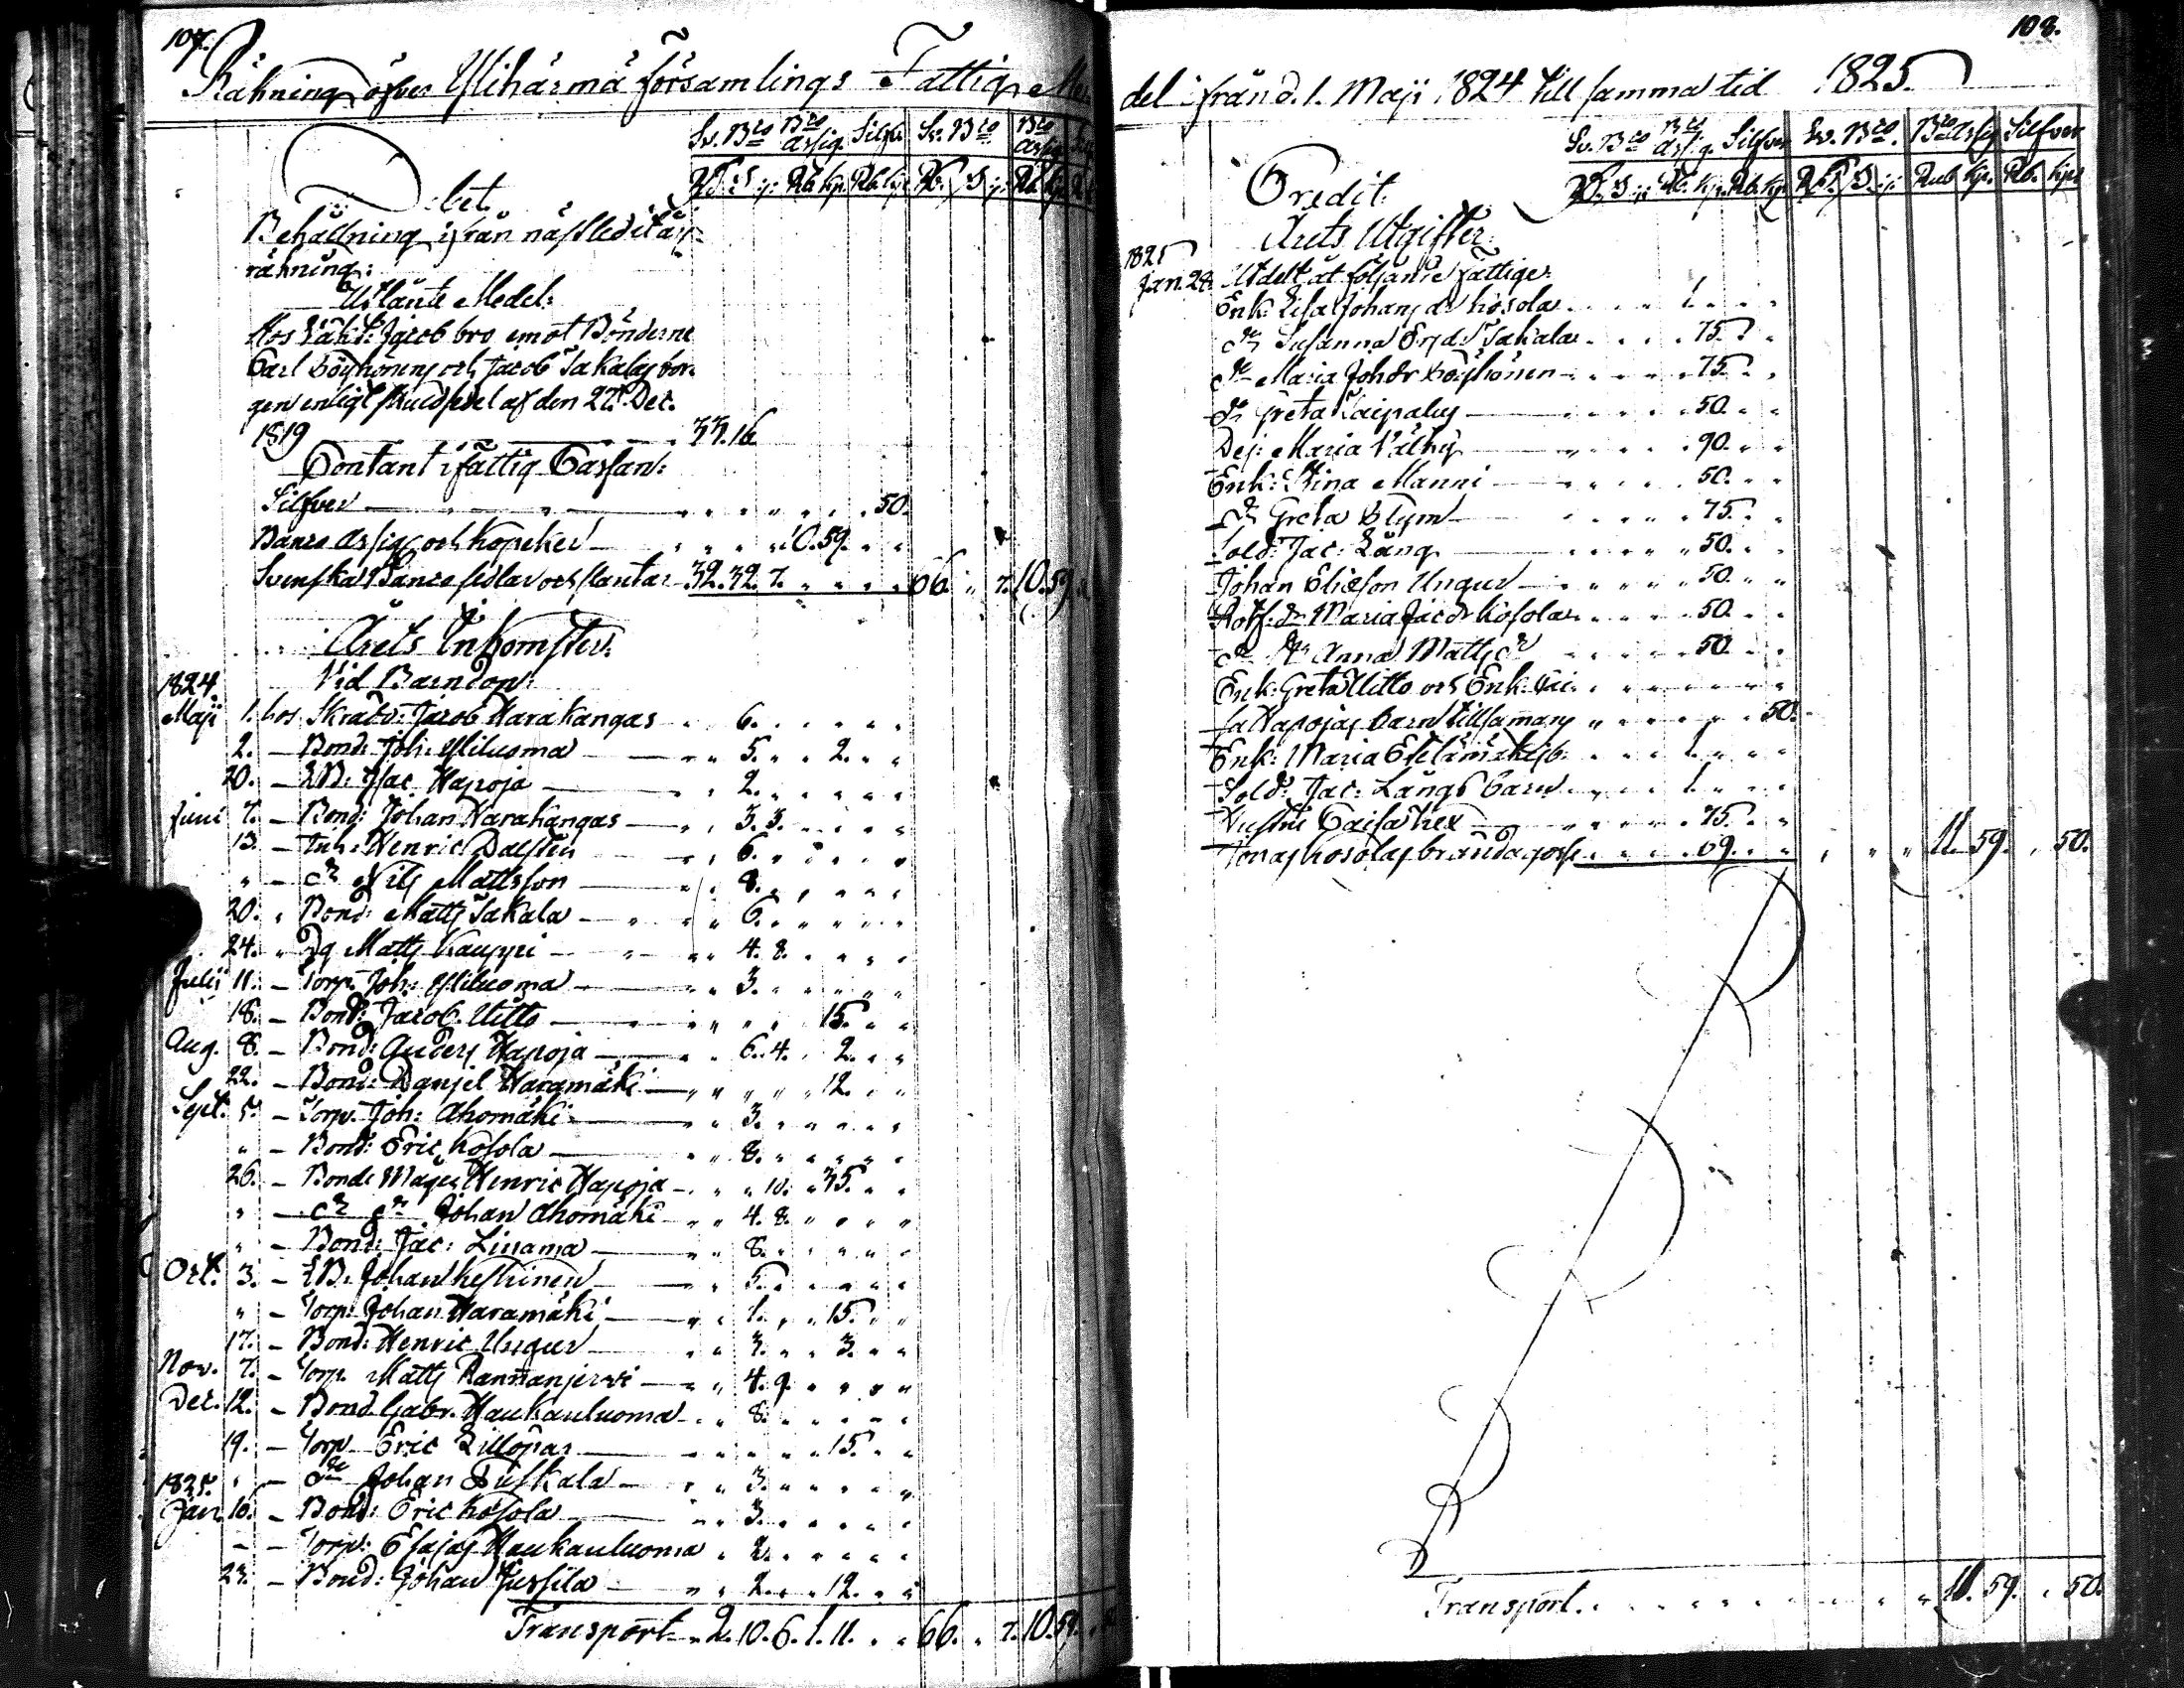 107.
Räkning öfver Ylihärmä församlings Fattige Me
Sv. Bco Bco Assig. Silfv. Sv. Bco Bco Assig.
Rd. s. r. Rb. kp. Rb. kp. Rd. s. r. Rb. kp.
Debet
Behållning ifrån näst ledit års
räkning:
Utlånte Medel:
Hos Bröd: Jacob bro emot Bönderne
Carl Köyhönens och Jacob Sakalas bor-
gen enligt skuldsedel af den 27. Dec.
1819 33.16
Contant i fattig Cassan:
Silfver 50.
Banco Assig. och Kopeker 10.59.
Svenska Banco sedlar och slantar 32.32.7. 66. 7. 10.59
Årets Inkomster.
1824. Vid Barndop:
Maji 1. hos Skrädd: Jacob Harakangas 6.
2. — Bond: Joh: Yliluoma 5. 2.
20. — Jac. Hapoja 2.
Juni 7. — Bond: Johan Harakangas 3. 3.
13. — Inh: Henric Dalsten 6.
" — do Nils Mattsson 8.
20. " Bond: Matts Sakala 6.
24. " Dg Matts Kauppi 4. 8.
Julii 11. — Torp. Joh: Yliluoma 3.
18. — Bond: Jacob Uitto 15.
Aug. 8. — Bond: Anders Hapoja 6. 4. 2.
22. — Bond: Danjel Haramäki 12.
Sept. 5. — Torp. Joh: Ahomäki 3.
" — Bond: Eric Kosola 8.
26. — Bonde Mågen Henric Hapoja 10. 35.
" — do do Johan Ahomäki 4. 8.
" — Bond: Jac: Linama 8.
Oct. 3. — Johan Keskinen 5.
" — Torp: Johan Haramäki 1. 15.
17. — Bond: Henric Ungur 3. 3.
Nov. 7. — Torp. Matts Rannanjervi 4. 9.
Dec. 12. — Bond Gabr. Haukauluoma 8.
19. — Torp. Eric Lillopas 15.
" — do Johan Tuiskala 3.
1825.
Jan. 16. — Bond: Eric Kosola 3.
— — Torp: Esajas Haukauluoma 2.
23. — Bond: Johan Jussila 2. 12.
Transport 2. 10. 6. 1. 11. 66. 7. 10.59.
108.
del ifrån d. 1. Maji 1824 till samma tid 1825.
Sv. Bco Bco Assig. Silfver Sv. Bco. Bco Assig Silfver
Rd. s. r. Rb. kp. Rb. kp. Rd. s. r. Rub kp. Rb. kp.
Credit.
Årets Utgifter.
1825
Jan. 28. Utdelt åt följande fattige:
Enk: Lisa Johans dr Kosola 1.
do Susanna Ersdr Sakala 75.
do Maria Joh dr Köyhönen 75.
do Greta Kaipalus 50.
Dej: Maria Välky 90.
Enk: Stina Manni 50.
do Greta Blym 75.
Sold: Jac: Lång 50.
Johan Ericsson Ungur 50.
Rotf. dr Maria Jac dr Kosola 50.
do do Anna Matts dr 50.
Enk: Greta Uitto och Enk: Cai-
sa Hapojas barn tillsamans 50.
Enk: Maria Etelämäkis b. 1.
Sold: Jac: Långs barn 1.
Caisa 75.
Jonas Kosolas 09. 11. 59. 50.
Transport 11. 59. 50.